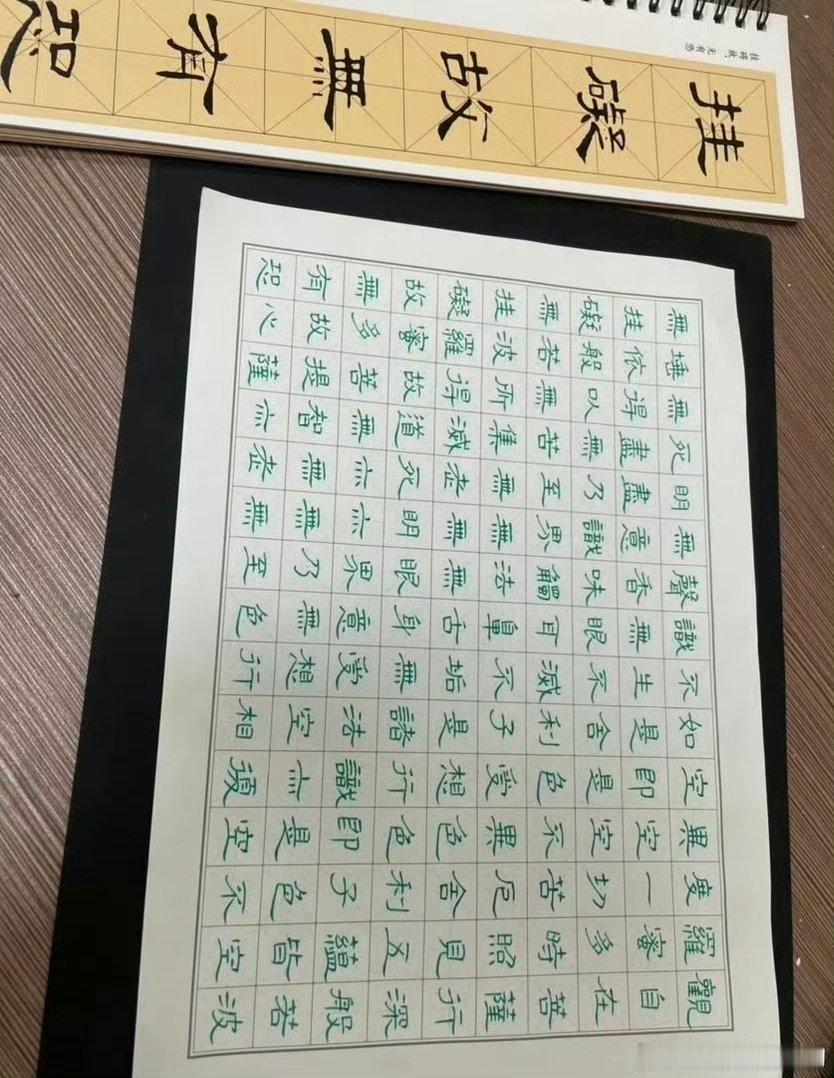 挂礙故無有恐
挂碍故，无有恐
觀自在菩薩行深般若波
羅蜜多時照見五蘊皆空
度一切苦厄舍利子色不
異空空不異色色即是空
空即是色受想行識亦須
如是舍利子是諸法空相
不生不滅不垢無受想行
識無眼耳鼻舌身意無色
聲香味觸法無眼界乃至
無意識界無無明亦無無
明盡乃至無老死亦無老
死盡無苦集滅道無智亦
無得以無所得故菩提薩
埵依般若波羅蜜多故心
無挂礙無挂礙故無有恐